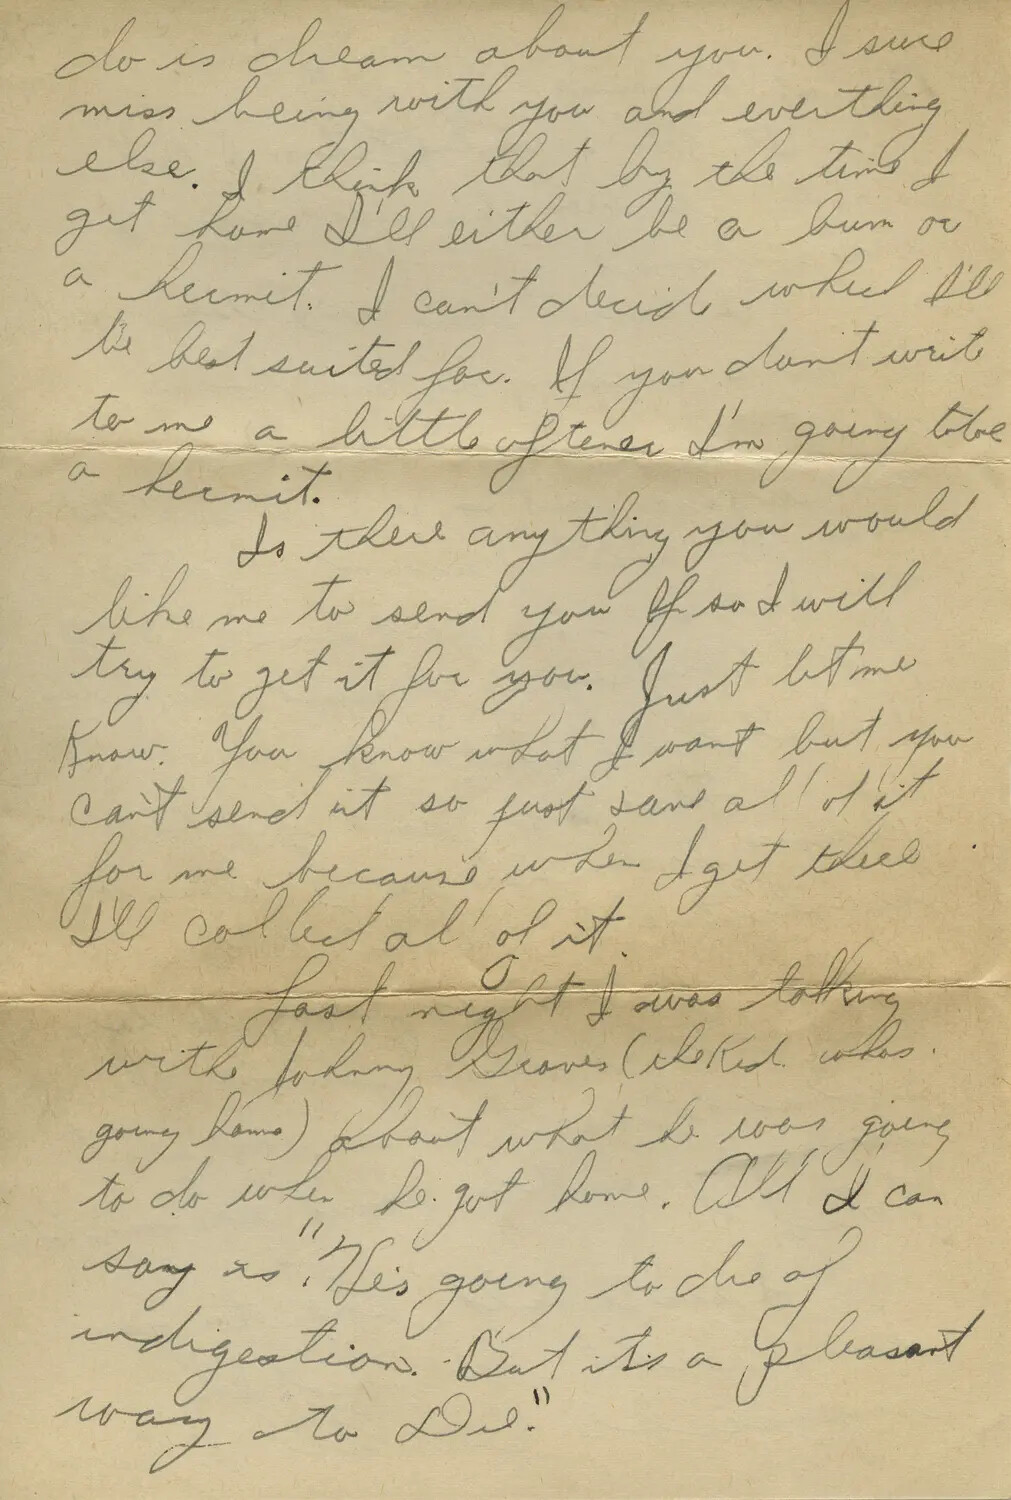 do is dream about you. I sure
miss being with you and everthing
else. I think that by the time I
get home I'll either be a bum or
a hermit. I can't decide which I'll
be best suited for. If you don't write
to me a little oftener I'm going to be
a hermit.
Is there anything you would
like me to send you If so I will
try to get it for you. Just let me
Know. You know what I want but you
can't send it so just save al' of it
for me because when I get there
I'll collect al' of it.
Last night I was talking
with Johnny Graves (the Kid whos
going home) about what he was going
to do when he got home. All I can
say is ". He's going to die of
indigestion. But its a pleasant
way to Die."